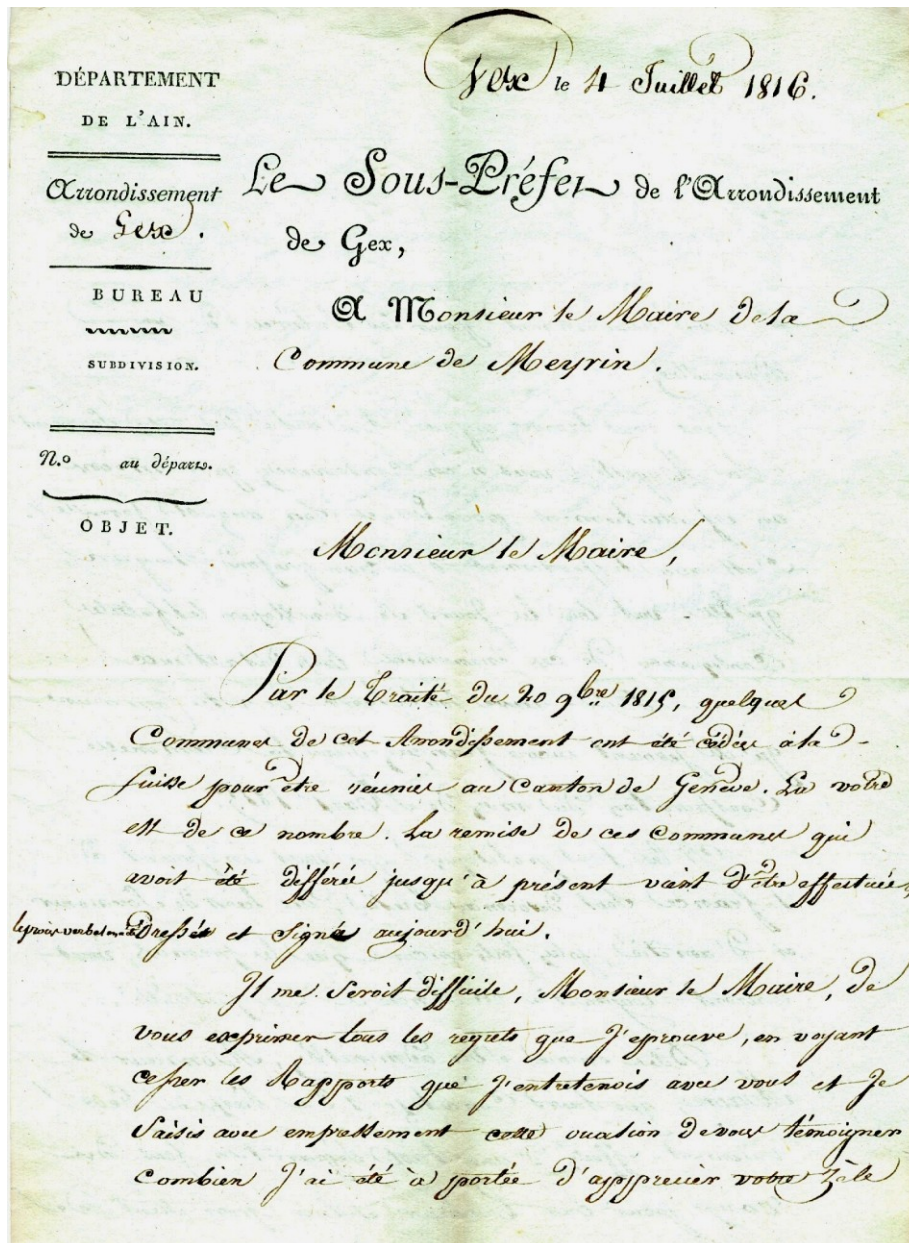 DÉPARTEMENT
DE L'AIN.
Arrondissement
de Gex.
BUREAU
SUBDIVISION.
N.º au départ.
OBJET.
Gex le 4 Juillet 1816.
Le Sous-Préfet de l'Arrondissement
de Gex,
A Monsieur le Maire de la
Commune de Meyrin.
Monsieur le Maire,
Par le Traité du 20 9bre 1815, quelques
Communes de cet Arrondissement ont été cédées à la
Suisse pour être réunies au Canton de Genève. La votre
est de ce nombre. La remise de ces Communes qui
avoit été différée jusqu'à présent vient d'être effectuée,
le procès verbal en a été Dressé et Signé aujourd'hui.
Il me Seroit difficile, Monsieur le Maire, de
vous exprimer tous les regrets que J'eprouve, en voyant
cesser les Rapports que J'entretenois avec vous et Je
Saisis avec empressement cette occasion de vous témoigner
combien J'ai été à portée d'apprecier votre Zèle